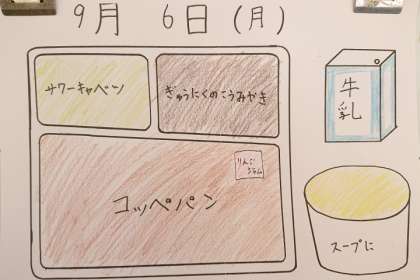 9月 6日(月)
サワーキャベツ
ぎゅうにくのこうみやき
牛
乳
りんご
ジャム
コッペパン
スープに